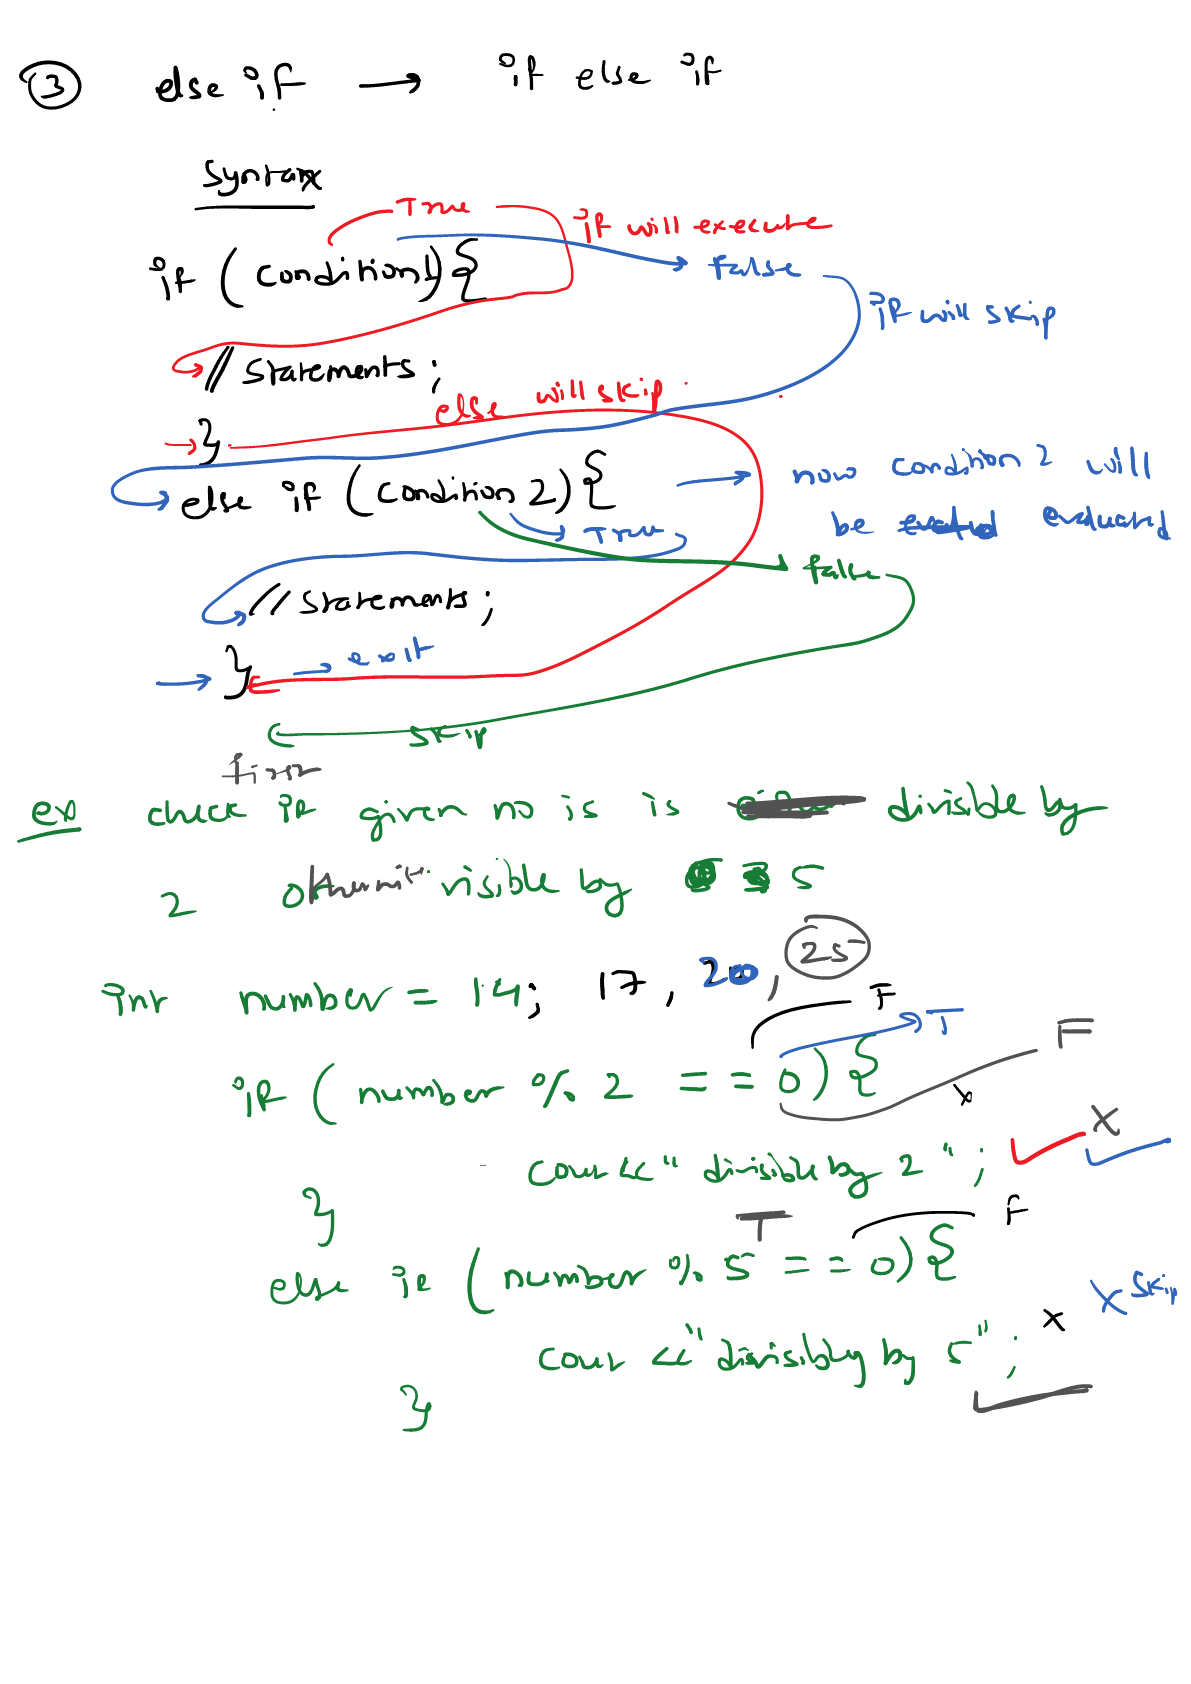 3 else if → if else if
Syntax
True
if will execute
if (condition1){
false
if will skip
// statements ;
else will skip
}
else if (condition 2){
now condition 2 will
be evaluated
True
false
// statements;
} → exit
skip
first
ex check if given no is is divisible by
2 visible by 5
int number = 14; 17, 20, 25
F
T
F
if ( number % 2 == 0) {
x
cout << " divisible by 2 " ; X
}
T
F
else if ( number % 5 == 0) {
x X skip
cout << "divisibly by 5" ;
}